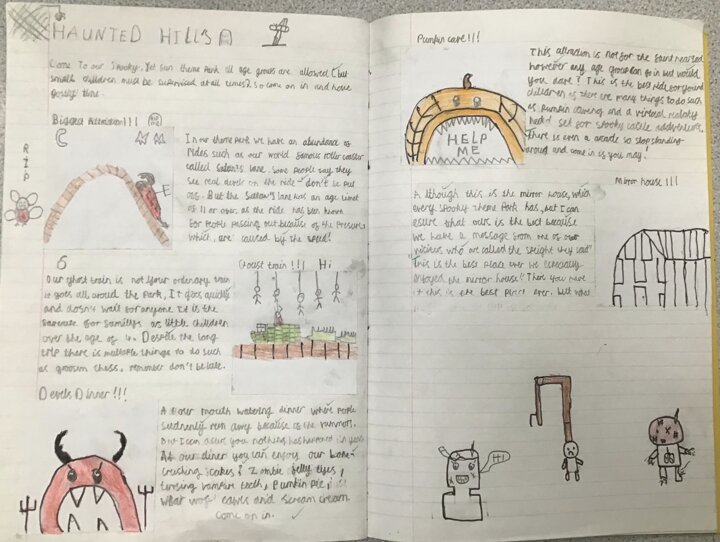 HAUNTED HILLS
Come to our spooky, Yet fun theme Park all age groups are allowed (but
small children must be supervised at all times) so come on in and have
time.
Biggest Attraction!!!
RIP
In our theme Park we have an abundance of
rides such as our world famous roller coaster
called Satan's lane. some people say they
see real devils on the ride - don't be put
off. But the lane has an age limit
of 11 or over as the ride has been known
for People passing out because of the Pressure
which, are caused by the speed!
Goast train!!! Hi
Our ghost train is not your ordinary train
it goes all around the park, It goes quickly
and doesn't wait for anyone it is the
for familys or little children
over the age of 4. Despite the long
trip there is multiple things to do such
as chess. remember don't be late.
Devels Dinner!!!
A our mouth watering dinner where People
suddenly run away because of the rumours.
But I can asure you nothing has happened in years
At our diner you can enjoy our bone-
crushing cakes & Zombie jelly eyes,
vampire teeth, Pumkin Pie,
what cakes and scream cream
come on in.
Pumkin cave!!!
HELP
ME
This attraction is not for the faint hearted
however any age group can go in but would
you dare? This is the best ride for young
children as there are many things to do such
as Pumkin carving and a virtual realaty
set for spooky castle addventure.
There is even a arcade so stop standing
around and come in if you may!
Mirror house!!!
Although this is the mirror house, which
every spooky theme Park has, but I can
esure that ours is the best because
we have a message from one of our
visitors who are called the they said
"This is the best place ever we especially
enjoyed the mirror house" There you have
it this is the best place ever. but what
Hi!